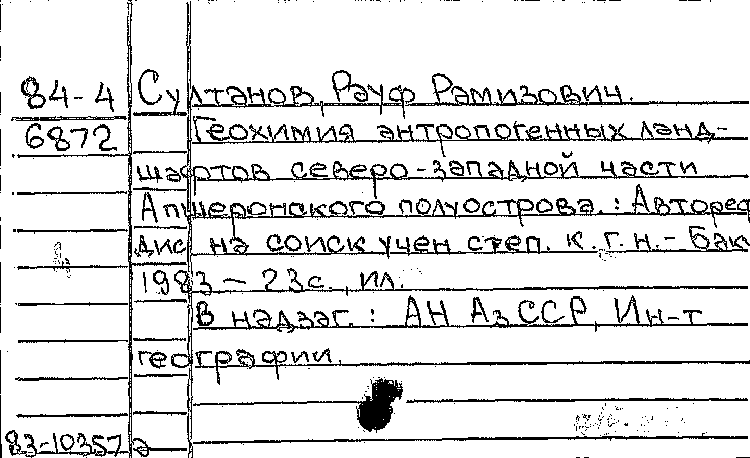 84-4 Султанов, Рауф Рамизович.
6872 Геохимия антропогенных ланд-
шафтов северо-западной части
Апшеронского полуострова.: Автореф
дис на соиск учен степ. к.г.н.- Бак
1983 - 23с., ил.
В надзаг.: АН АзССР, Ин-т
географии.
83-10357а